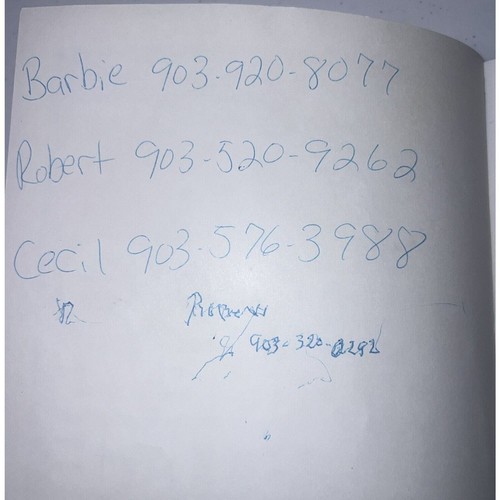 Barbie 903-920-8077
Robert 903-520-9262
Cecil 903-576-3988
903-320-2292